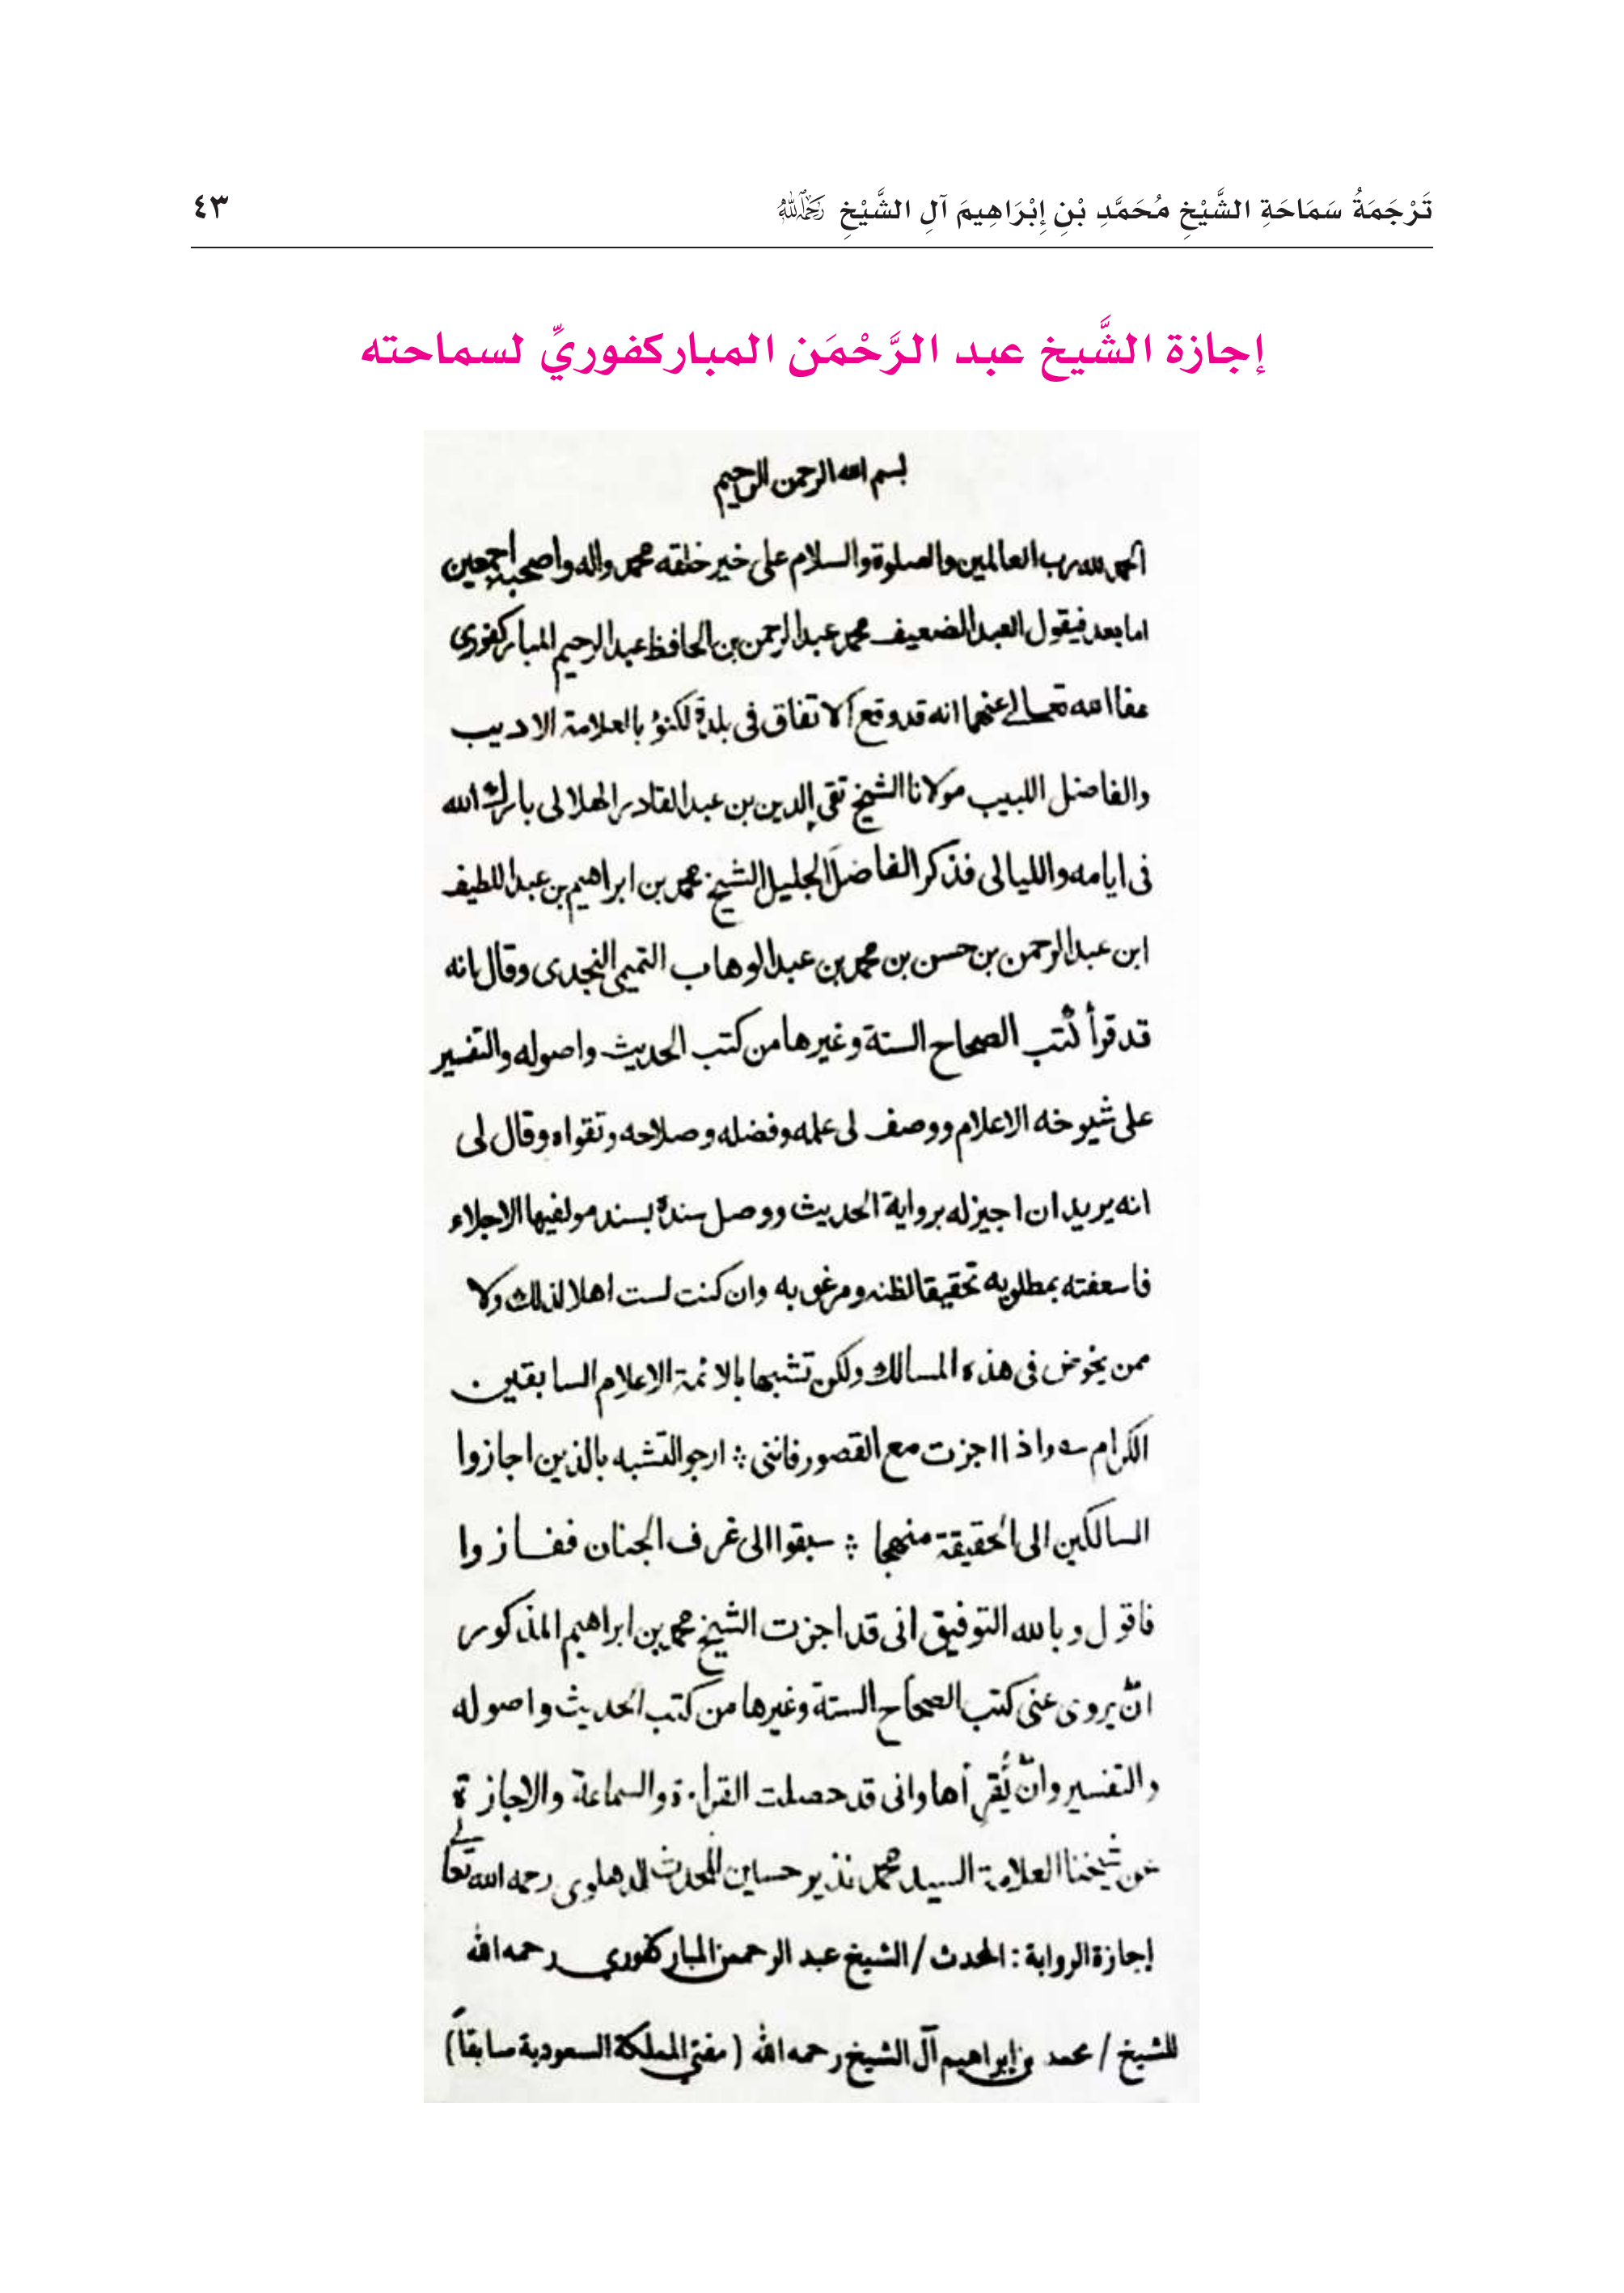 تَرْجَمَةُ سَمَاحَةِ الشَّيْخِ مُحَمَّدِ بْنِ إِبْرَاهِيمَ آلِ الشَّيْخِ رَحِمَهُ اللهُ ٤٣
إجازة الشَّيخ عبد الرَّحْمَن المباركفوريِّ لسماحته
بسم الله الرحمن الرحيم
الحمد لله رب العالمين والصلوة والسلام على خير خلقه محمد واله واصحبه اجمعين
اما بعد فيقول العبد الضعيف محمد عبد الرحمن بن الحافظ عبد الرحيم المباركفورى
عفا الله تعالى عنهما انه قد وقع الاتفاق فى بلدة لكنؤ بالعلامة الاديب
والفاضل اللبيب مولانا الشيخ تقى الدين بن عبد القادر الهلالى بارك الله
فى ايامه والليالى فذكر الفاضل الجليل الشيخ محمد بن ابراهيم بن عبد اللطيف
ابن عبد الرحمن بن حسن بن محمد بن عبد الوهاب التميمى النجدى وقال انه
قد قرأ كُتب الصحاح الستة وغيرها من كتب الحديث واصوله والتفسير
على شيوخه الاعلام ووصف لى علمه وفضله وصلاحه وتقواه وقال لى
انه يريد ان اجيز له برواية الحديث ووصل سنده بسند مولفيها الاجلاء
فاسعفته بمطلوبه تحقيقا لظنه ومرغوبه وان كنت لست اهلا لذلك ولا
ممن يخوض فى هذه المسالك ولكن تشبها بالائمة الاعلام السابقين
الكرام ؎ واذا اجزت مع القصور فاننى ؞ ارجو التشبه بالذين اجازوا
السالكين الى الحقيقة منهجا ؞ سبقوا الى غرف الجنان ففازوا
فاقول وبالله التوفيق انى قد اجزت الشيخ محمد بن ابراهيم المذكور
انّ يروى عنى كتب الصحاح الستة وغيرها من كتب الحديث واصوله
والتفسير وانّ يُّقرِأها وانى قد حصلت القراءة والسماعة والاجازة
عن شيخنا العلامة السيد محمد نذير حسين المحدث الدهلوى رحمه الله تعالى
إجازة الرواية : المحدث / الشيخ عبد الرحمن المباركفوري رحمه الله
للشيخ / محمد بن إبراهيم آل الشيخ رحمه الله ( مفتي المملكة السعودية سابقاً )